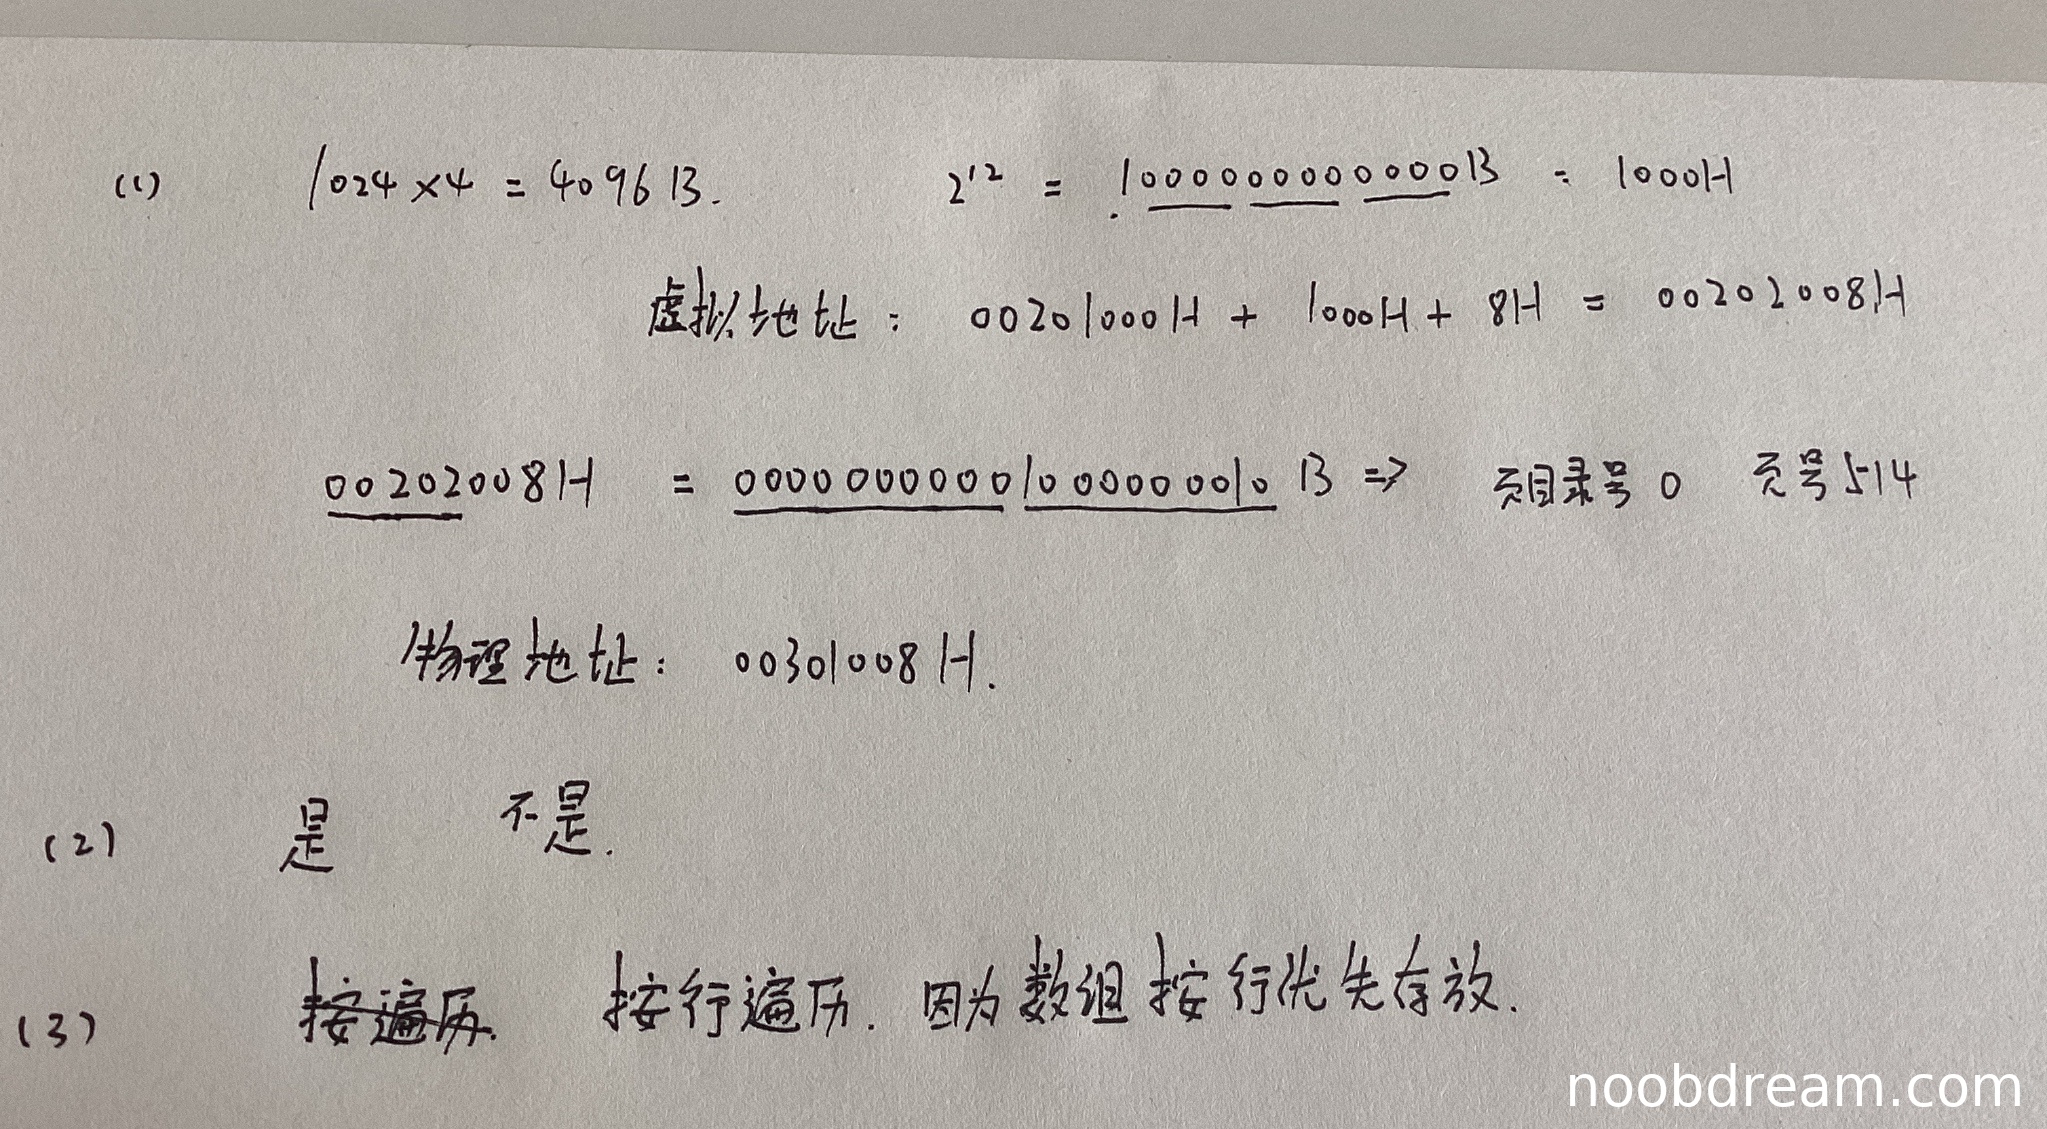 (1) 1024×4 = 4096B. 2¹² = 1000000000000B = 1000H
虚拟地址: 00201000H + 1000H + 8H = 00202008H
00202008H = 00000000001000000010B => 页目录号0 页号514
物理地址: 00301008H.
(2) 是 不是.
(3) 按遍历. 按行遍历. 因为数组按行优先存放.
noobdream.com